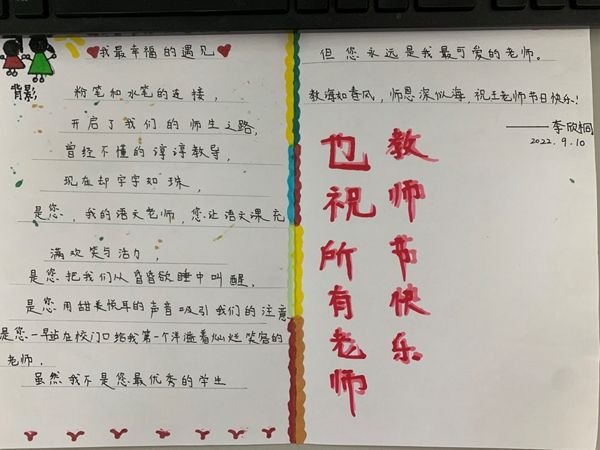 ❤我最幸福的遇见❤
背影
粉笔和水笔的连接，
开启了我们的师生之路，
曾经不懂的谆谆教导，
现在却字字如珠，
是您，我的语文老师，您让语文课充
满欢笑与活力，
是您把我们从昏昏欲睡中叫醒，
是您用甜美悦耳的声音吸引我们的注意
是您一早站在校门口给我第一个洋溢着灿烂笑容的
老师，
虽然我不是您最优秀的学生
但您永远是我最可爱的老师。
教海如春风，师恩深似海，祝王老师节日快乐！
——李欣桐
2022.9.10
也祝所有老师
教师节快乐